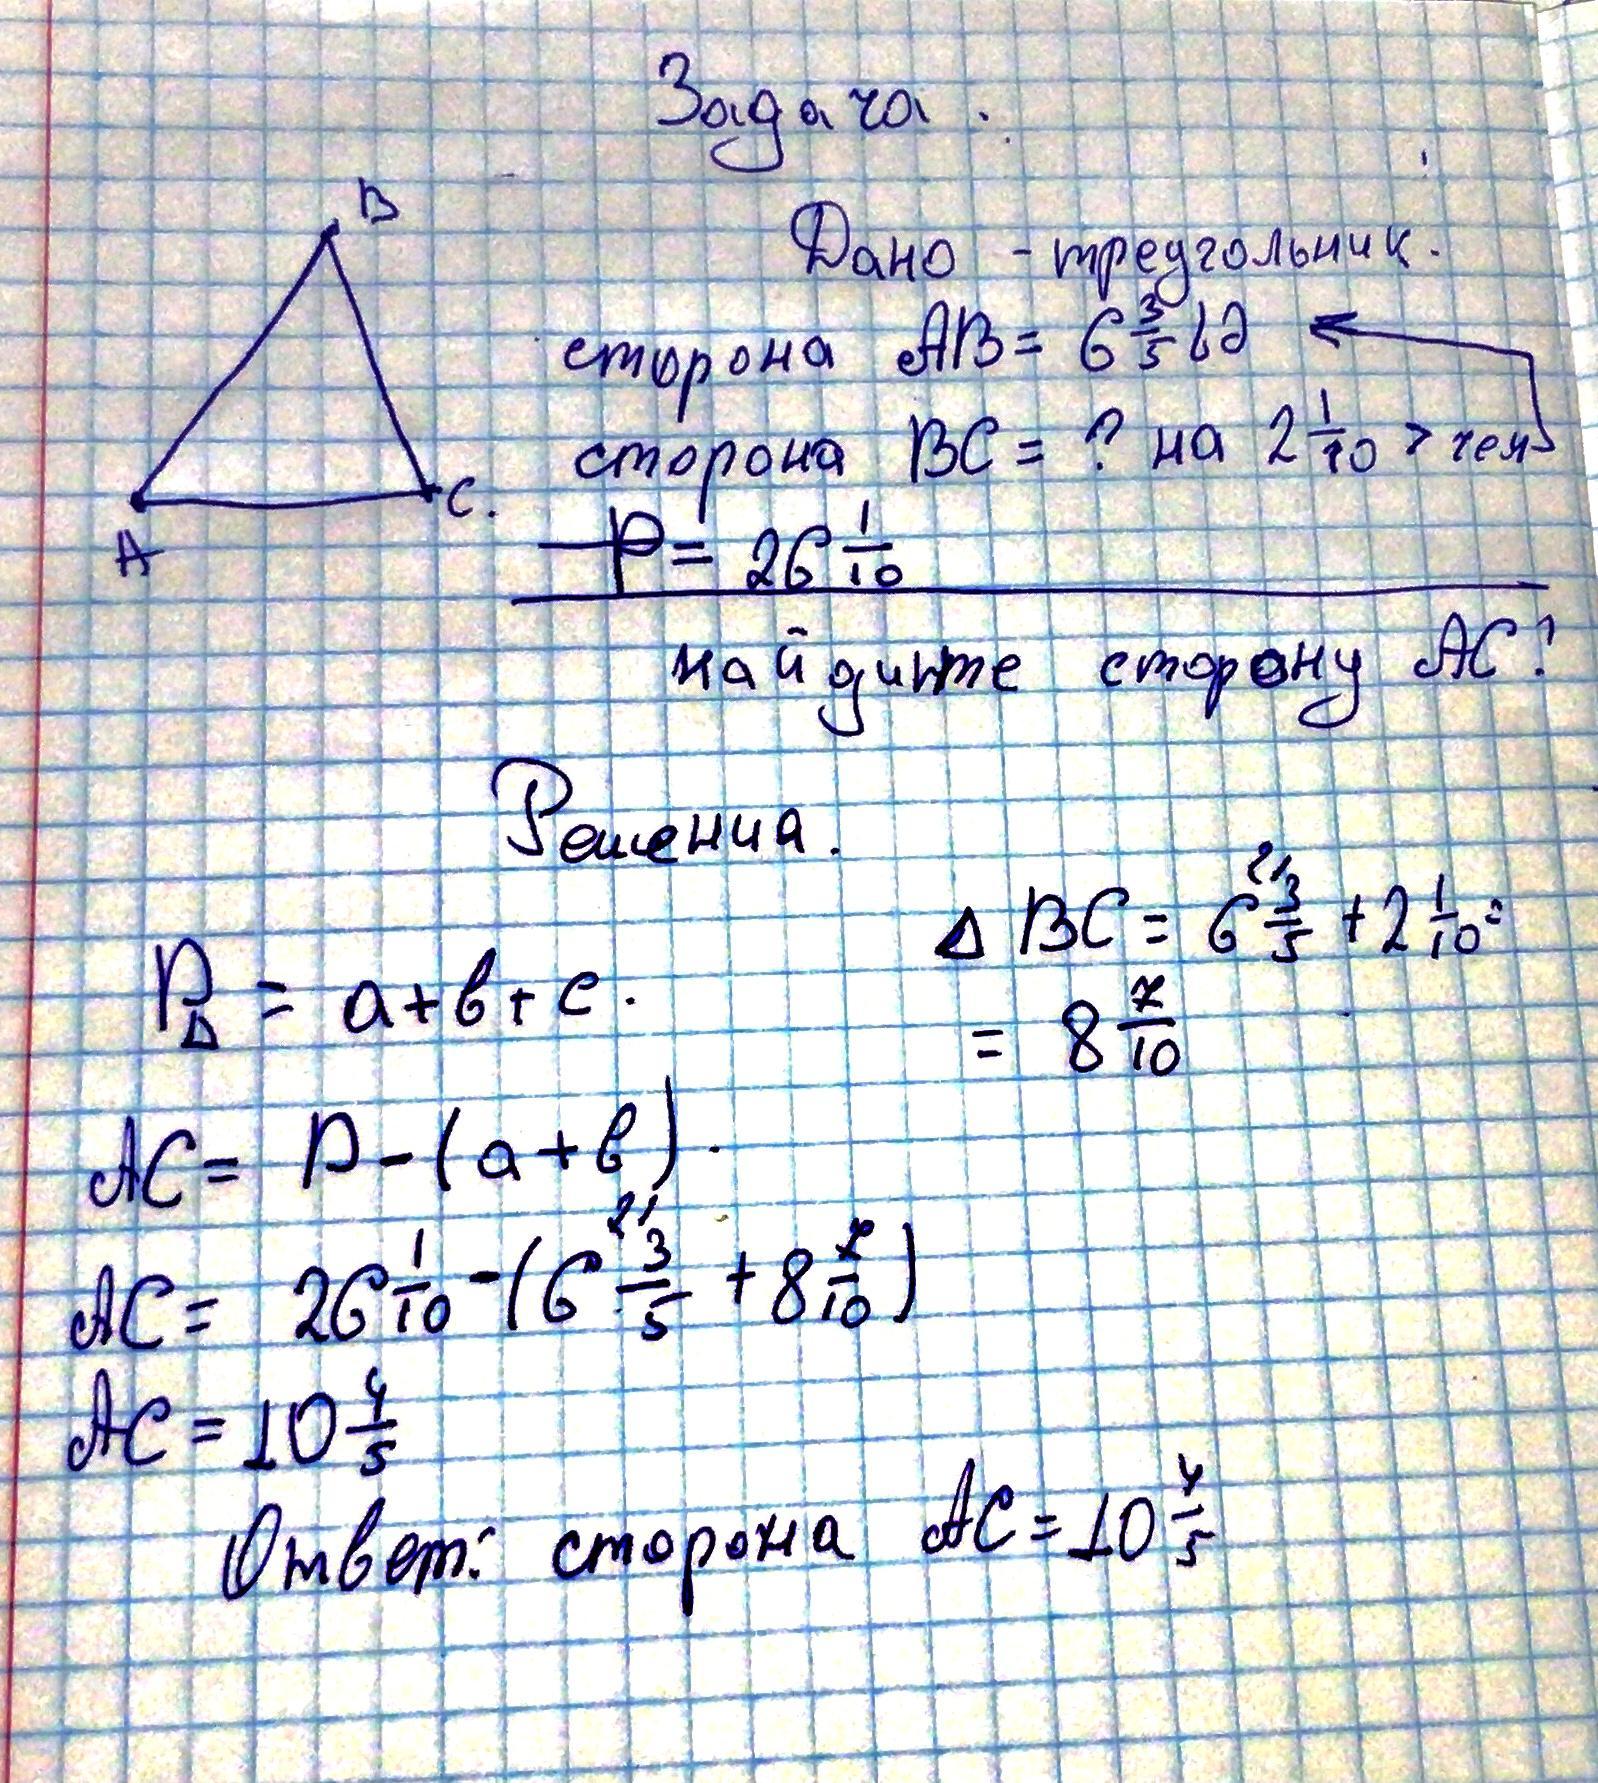 Задача.
B
A
C.
Дано - треугольник.
сторона AB = 6 3/5
сторона BC = ? на 2 1/10 > чем
P = 26 1/10
найдите сторону AC?
Решения.
P△ = a+b+c.
△ BC = 6 3/5 + 2 1/10 =
= 8 7/10
AC = P - (a+b).
AC = 26 1/10 - (6 3/5 + 8 7/10)
AC = 10 4/5
Ответ: сторона AC = 10 4/5